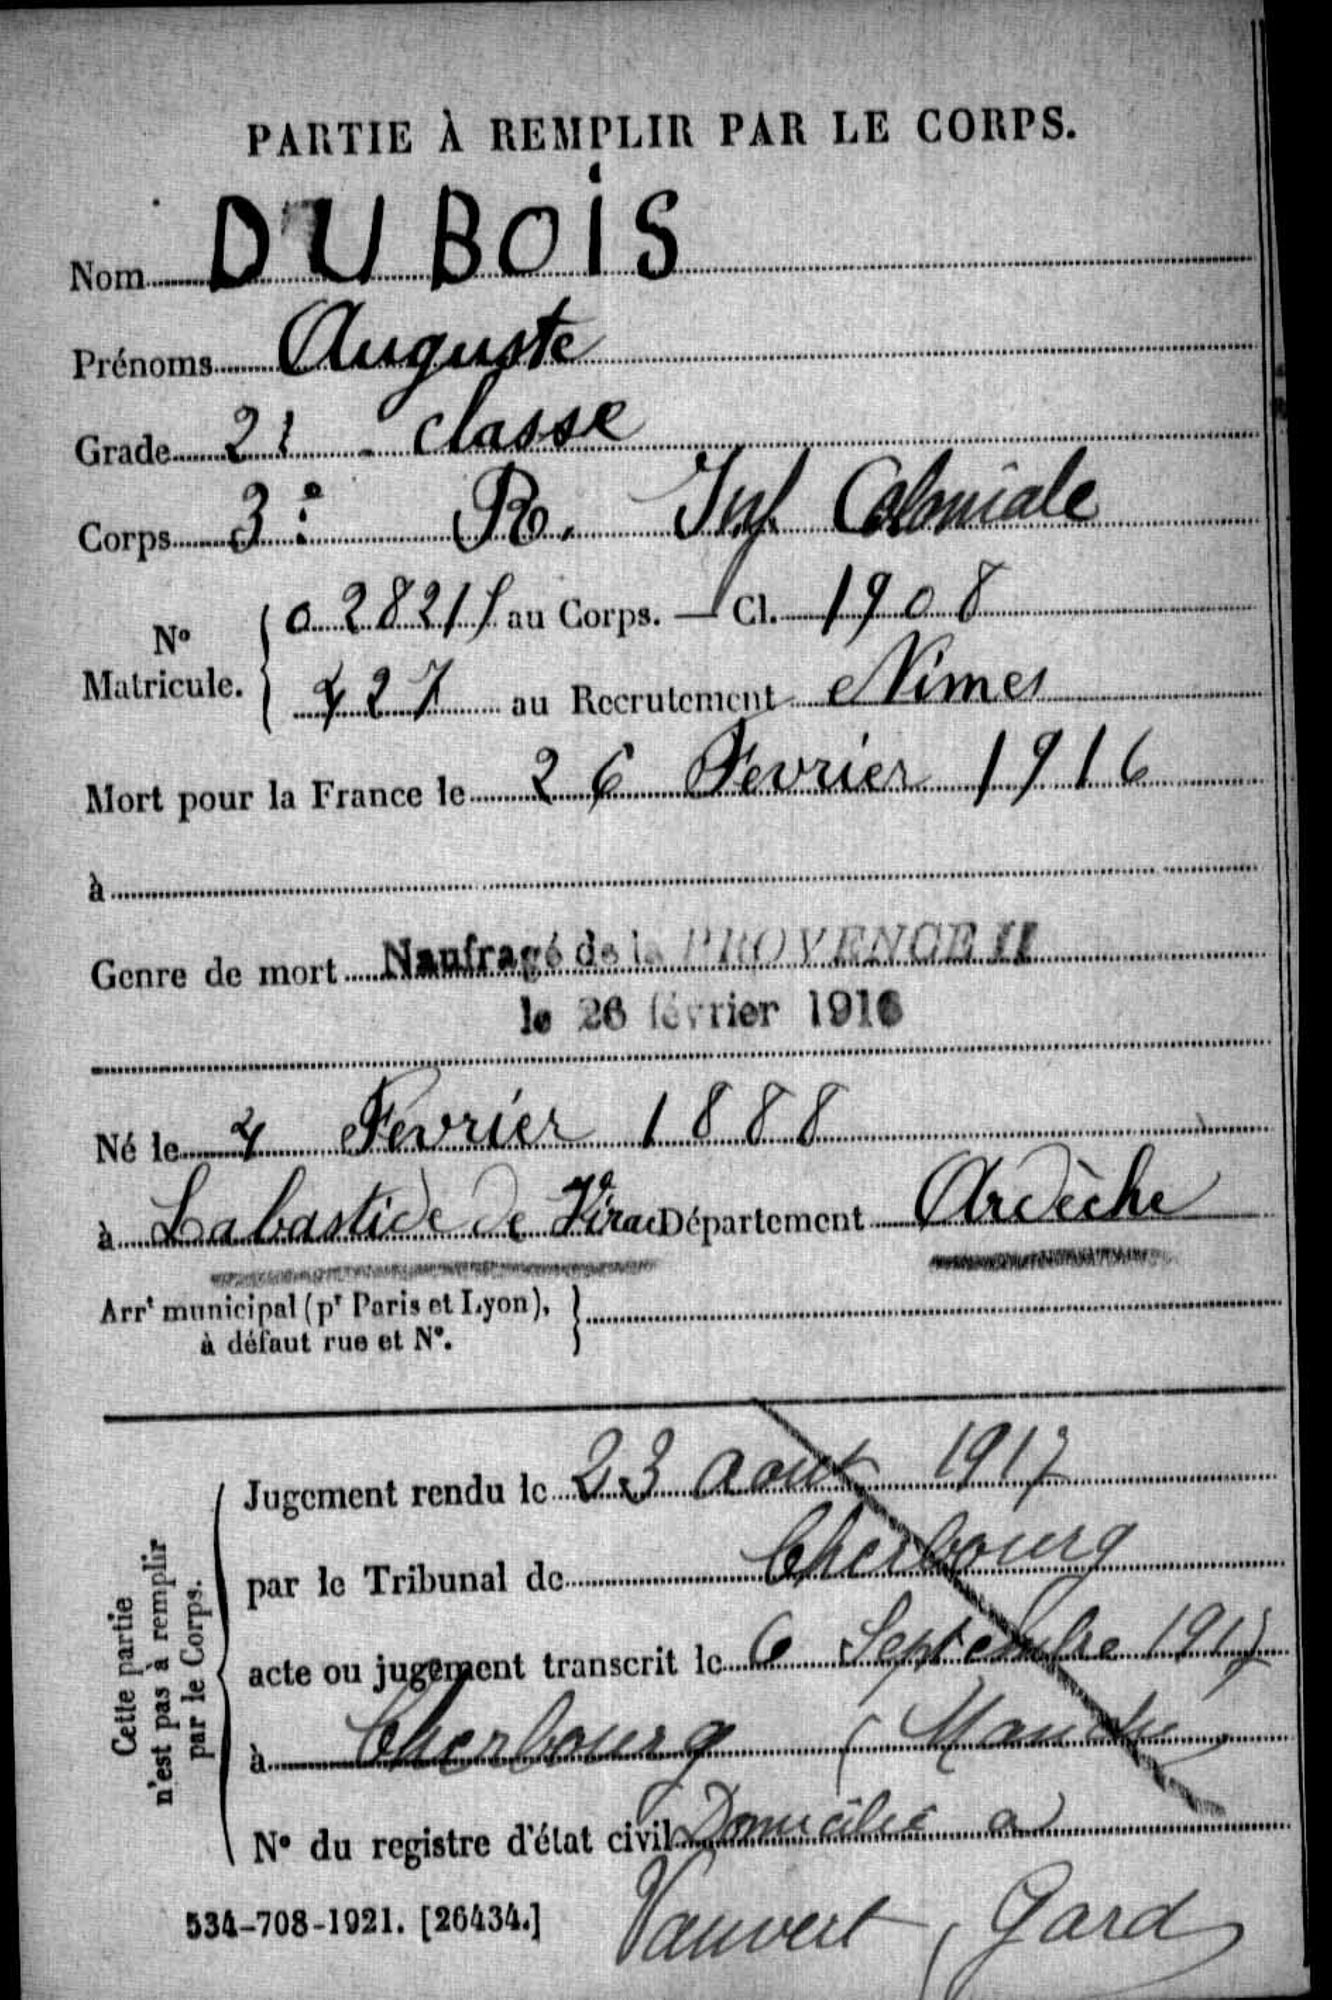 PARTIE À REMPLIR PAR LE CORPS.
Nom DUBOIS
Prénoms Auguste
Grade 2e classe
Corps 3e R. Inf Coloniale
No Matricule. { 02821 au Corps. — Cl. 1908
427 au Recrutement Nîmes
Mort pour la France le 26 Fevrier 1916
à
Genre de mort Naufragé de la PROVENCE II
le 26 février 1916
Né le 4 Fevrier 1888
à Labastide de Virac Département Ardèche
Arrt municipal (pr Paris et Lyon),
à défaut rue et No.
Cette partie
n'est pas à remplir
par le Corps.
Jugement rendu le 23 aout 1917
par le Tribunal de Cherbourg
acte ou jugement transcrit le 6 Septembre 1917
à Cherbourg (Manche
No du registre d'état civil Domicilié a
Vauvert, Gard
534-708-1921. [26434.]